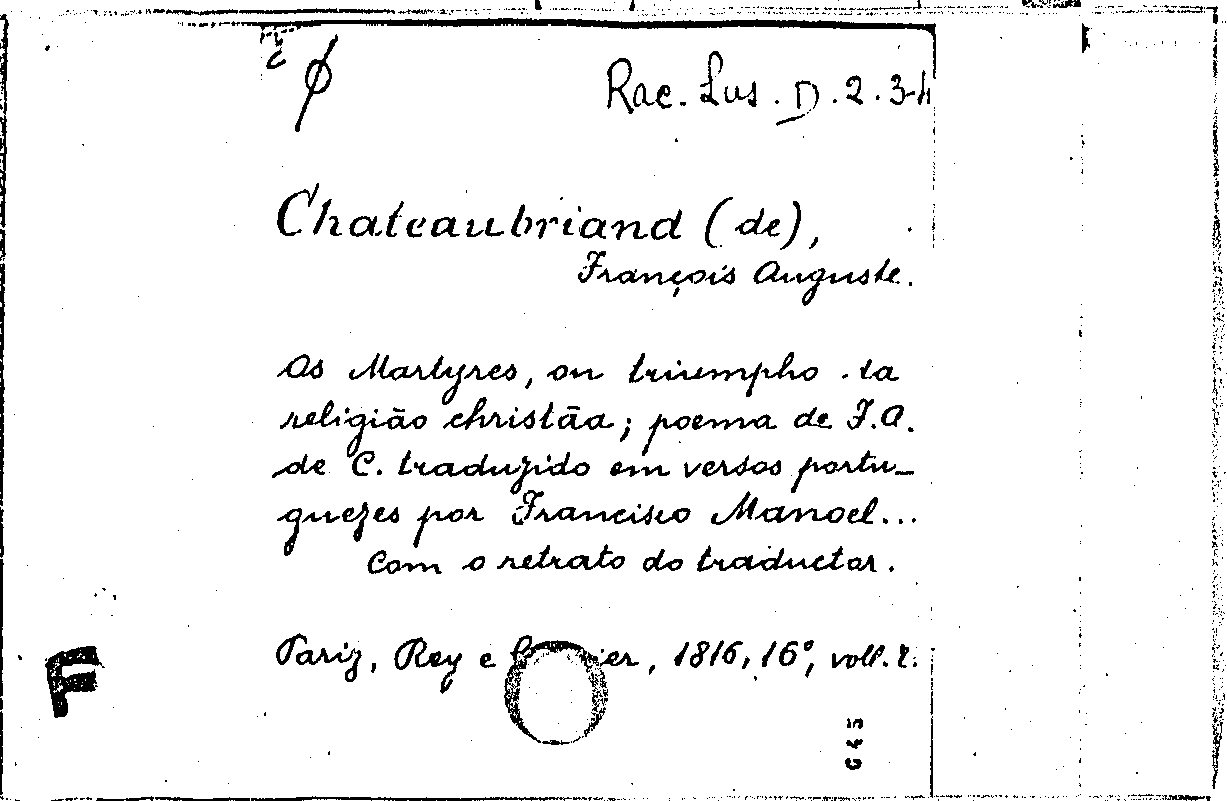 φ
Rac. Lus. D. 2. 3-4
Chateaubriand (de),
François Auguste.
Os Martyres, ou triumpho da
religião christãa; poema de F.A.
de C. traduzido em versos portu-
guezes por Francisco Manoel...
Com o retrato do traductor.
Pariz, Rey e , 1816, 16°, voll. 2.
F
G45